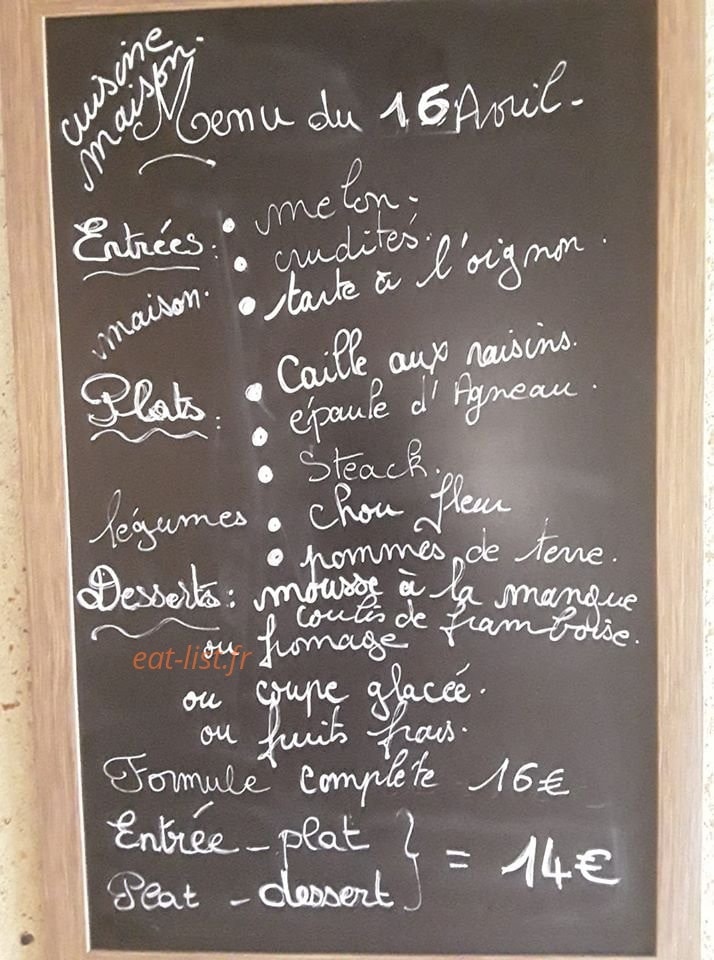 cuisine
maison.
Menu du 16 Avril.
Entrées: • melon.
• crudités.
maison. • tarte à l'oignon.
Plats: • Caille aux raisins.
• épaule d'Agneau.
• Steack.
légumes • chou fleur
• pommes de terre.
Desserts: mousse à la mangue
coulis de framboise.
ou fromage
eat-list.fr
ou coupe glacée.
ou fruits frais.
Formule complète 16€
Entrée - plat
Plat - dessert } = 14€